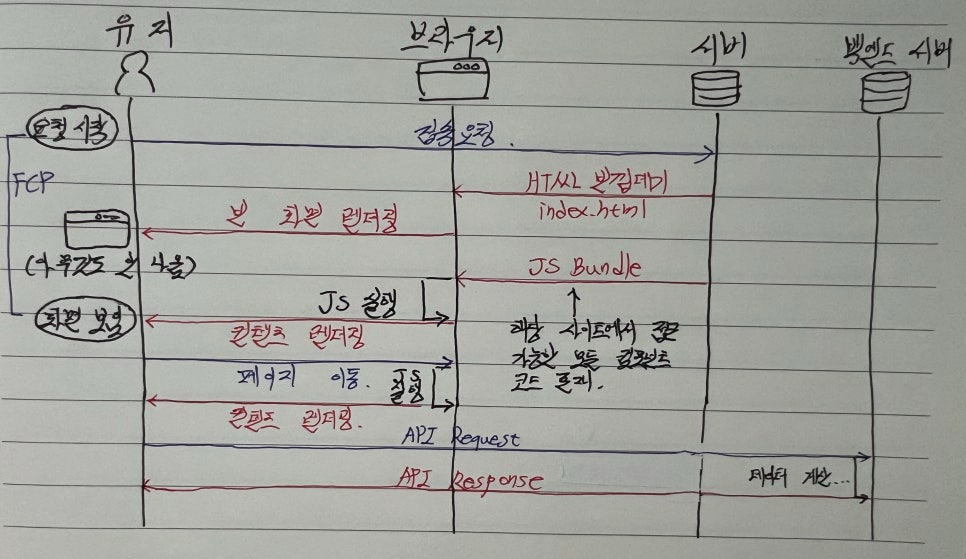 유저
브라우저
서버
백엔드 서버
요청 시작
접속 요청.
FCP
HTML 빈껍데기
index.html
빈 화면 렌더링
(아무것도 안 나옴)
JS Bundle
JS 실행
화면 보임
컨텐츠 렌더링
해당 사이트에서 접근
가능한 모든 컴포넌트
코드 존재.
페이지 이동.
JS
실행
컨텐츠 렌더링.
API Request
데이터 계산...
API Response